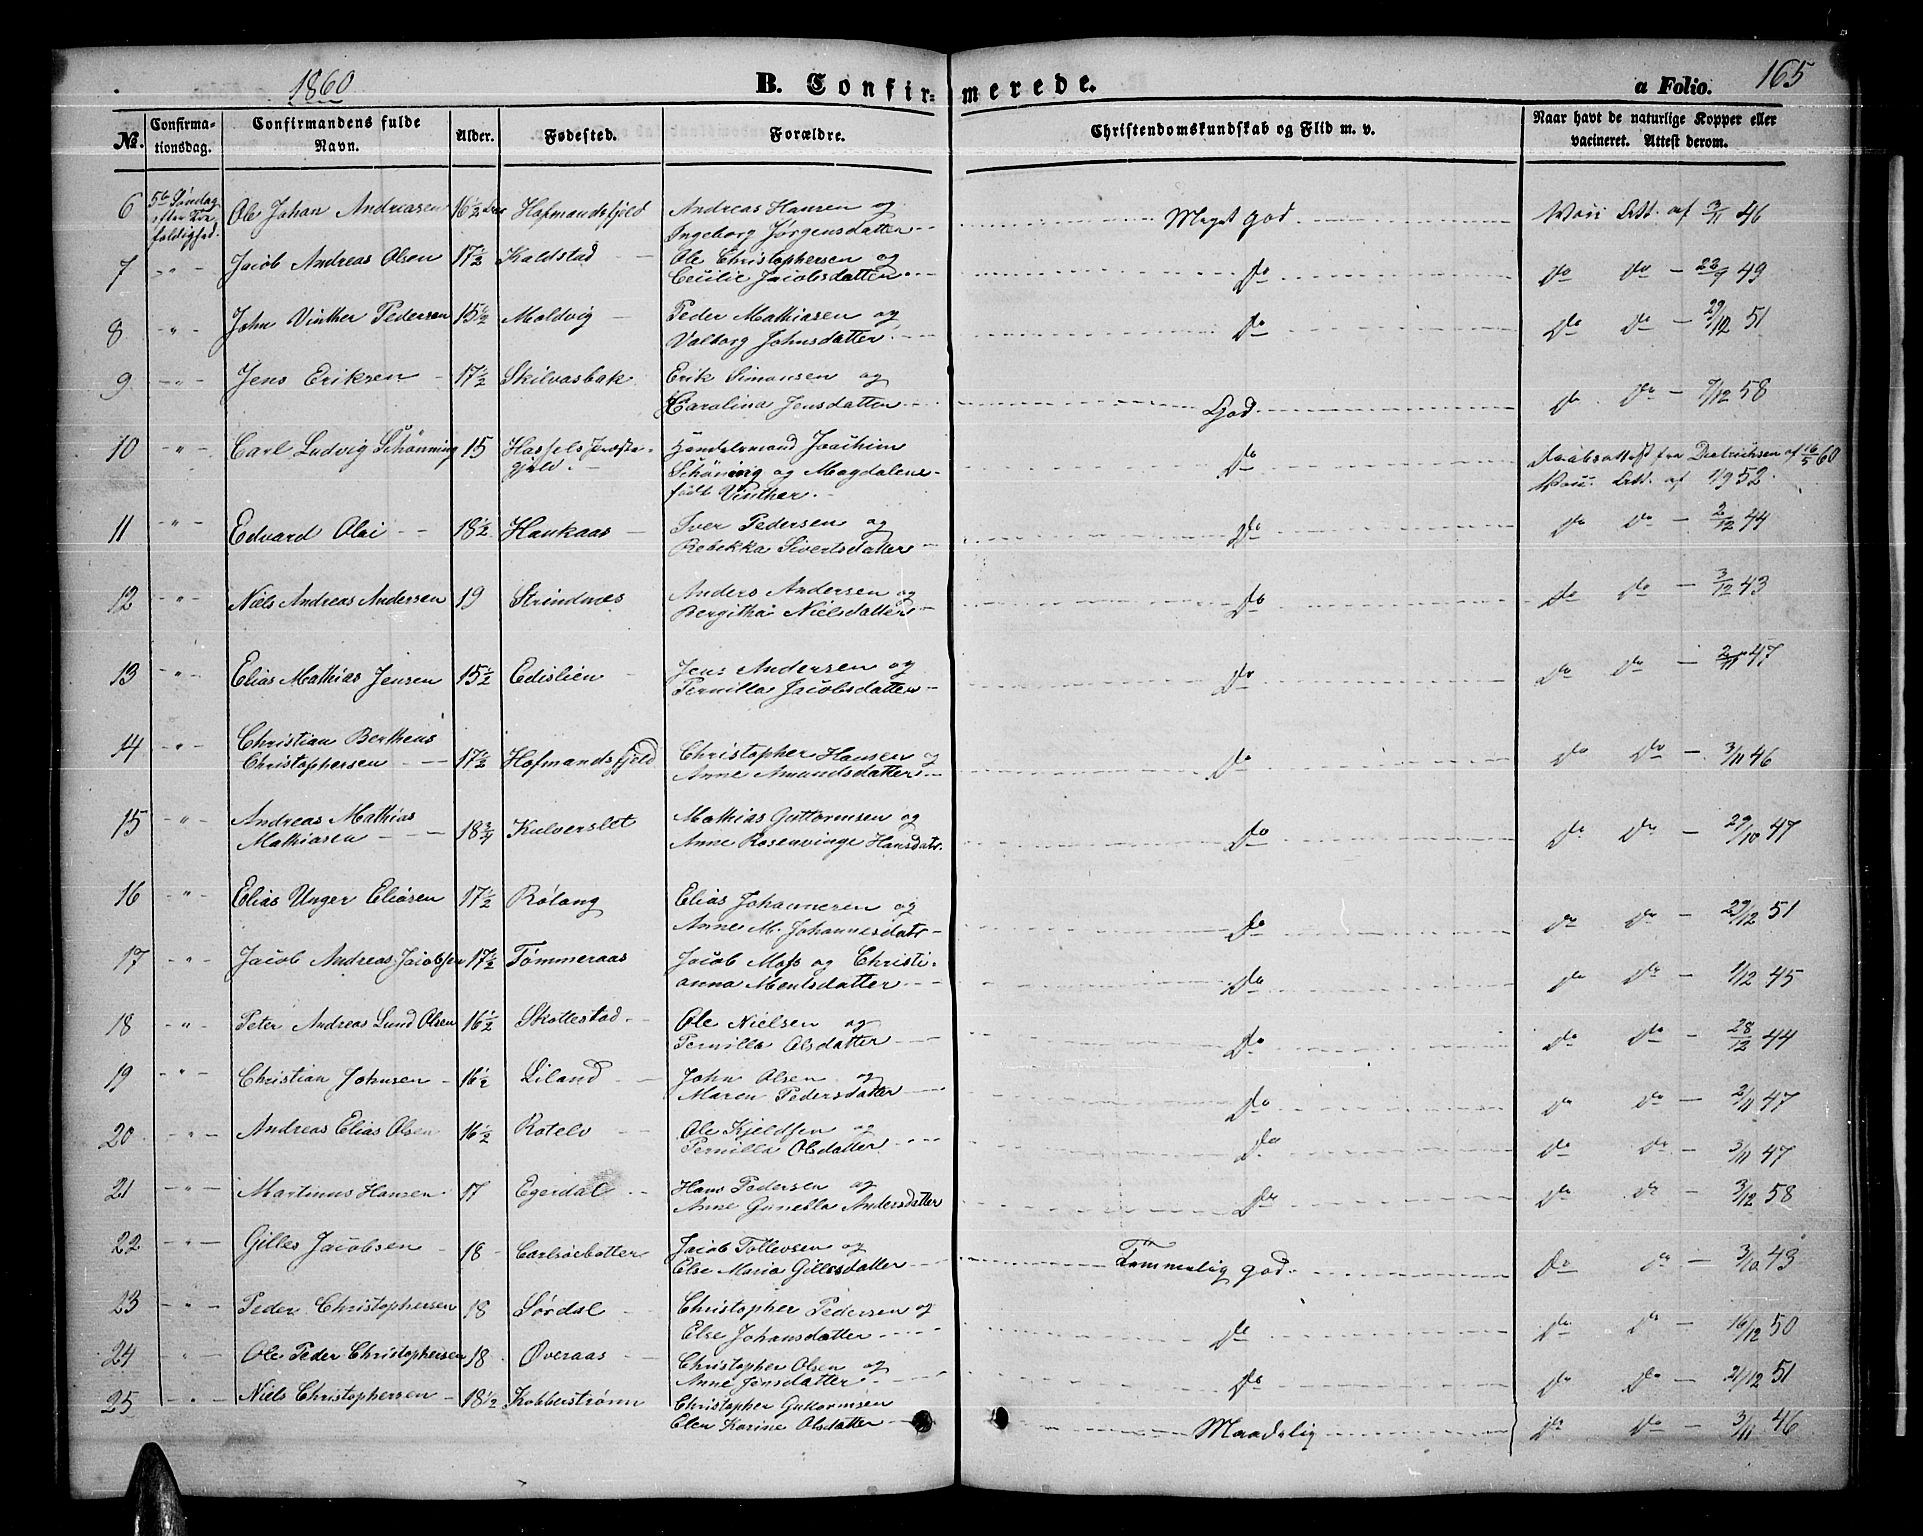 1860 B. Confirmerede. a Folio. 165
No. Confirmationsdag. Confirmandens fulde Navn. Alder. Fødested. Forældre. Christendomskundskab og Flid m. v. Naar havt de naturlige Kopper eller vacineret. Attest derom.
6 5te Søndag efter Trefoldighed. Ole Johan Andreasen 16 1/2 Hofmandsfjeld Andreas Hansen og Ingeborg Jørgensdatter Meget god Att. af 3/11 46
7 -"- Jacob Andreas Olsen 17 1/2 Kaldstad Ole Christophersen og Cecilie Jacobsdatter Do Do Do - 22/9 49
8 -"- John Vinther Pedersen 15 1/2 Moldvig Peder Mathiasen og Valborg Johnsdatter Do Do Do - 29/12 51
9 -"- Jens Eriksen 17 1/2 Skilvasbak Erik Simonsen og Carolina Jensdatter God Do Do - 7/12 58
10 -"- Carl Ludvig Schønning 15 Hassels Præstegjeld Handelsmand Joachim Schøning og Magdalene født Vinther Do Daabsattest fra Dietrichsen af 16/5 60 Att. af 1/9 52
11 -"- Edvard Olai 18 1/2 Haukaas Iver Pedersen og Rebekka Sivertsdatter Do Do Do - 2/12 44
12 -"- Niels Andreas Andersen 19 Strindnæs Anders Andersen og Bergitha Nielsdatter Do Do Do - 3/12 43
13 -"- Elias Mathias Jensen 15 1/2 Edislien Jens Andersen og Pernilla Jacobsdatter Do Do Do - 2/11 47
14 -"- Christian Bertheus Christophersen 17 1/2 Hofmandsfjeld Christopher Hansen og Anne Amundsdatter Do Do Do - 3/11 46
15 -"- Andreas Mathias Mathiasen 18 3/4 Kulverslet Mathias Guttormsen og Anne Rosenvinge Hansdatr Do Do Do - 29/10 47
16 -"- Elias Unger Eliasen 17 1/2 Rølang Elias Johannesen og Anne M. Johannesdatr Do Do Do - 29/12 51
17 -"- Jacob Andreas Jacobsen 17 1/2 Tømmeraas Jacob Mofs og Christianna Mentsdatter Do Do Do - 1/12 45
18 -"- Peter Andreas Lund Olsen 16 1/2 Skottestad Ole Nielsen og Pernilla Olsdatter Do Do Do - 28/12 44
19 -"- Christian Johnsen 16 1/2 Liland John Olsen og Maren Pedersdatter Do Do Do - 2/11 47
20 -"- Andreas Elias Olsen 16 1/2 Rotelv Ole Kjeldsen og Pernilla Olsdatter Do Do Do - 3/11 47
21 -"- Martinus Hansen 17 Egerdal Hans Pedersen og Anne Gunella Andersdatter Do Do Do - 3/12 58
22 -"- Gilles Jacobsen 18 Jacob Tollevsen og Else Maria Gillesdatter Temmelig god Do Do - 3/10 43
23 -"- Peder Christophersen 18 Sørdal Christopher Pedersen og Else Johansdatter Do Do Do - 16/12 50
24 -"- Ole Peder Christophersen 18 Øveraas Christopher Olsen og Anne Jensdatter Do Do Do - 2/12 51
25 -"- Niels Christophersen 18 1/2 Kobberstrømn Christopher Guttormsen Elen Karine Olsdatter Maadelig Do Do - 3/11 46